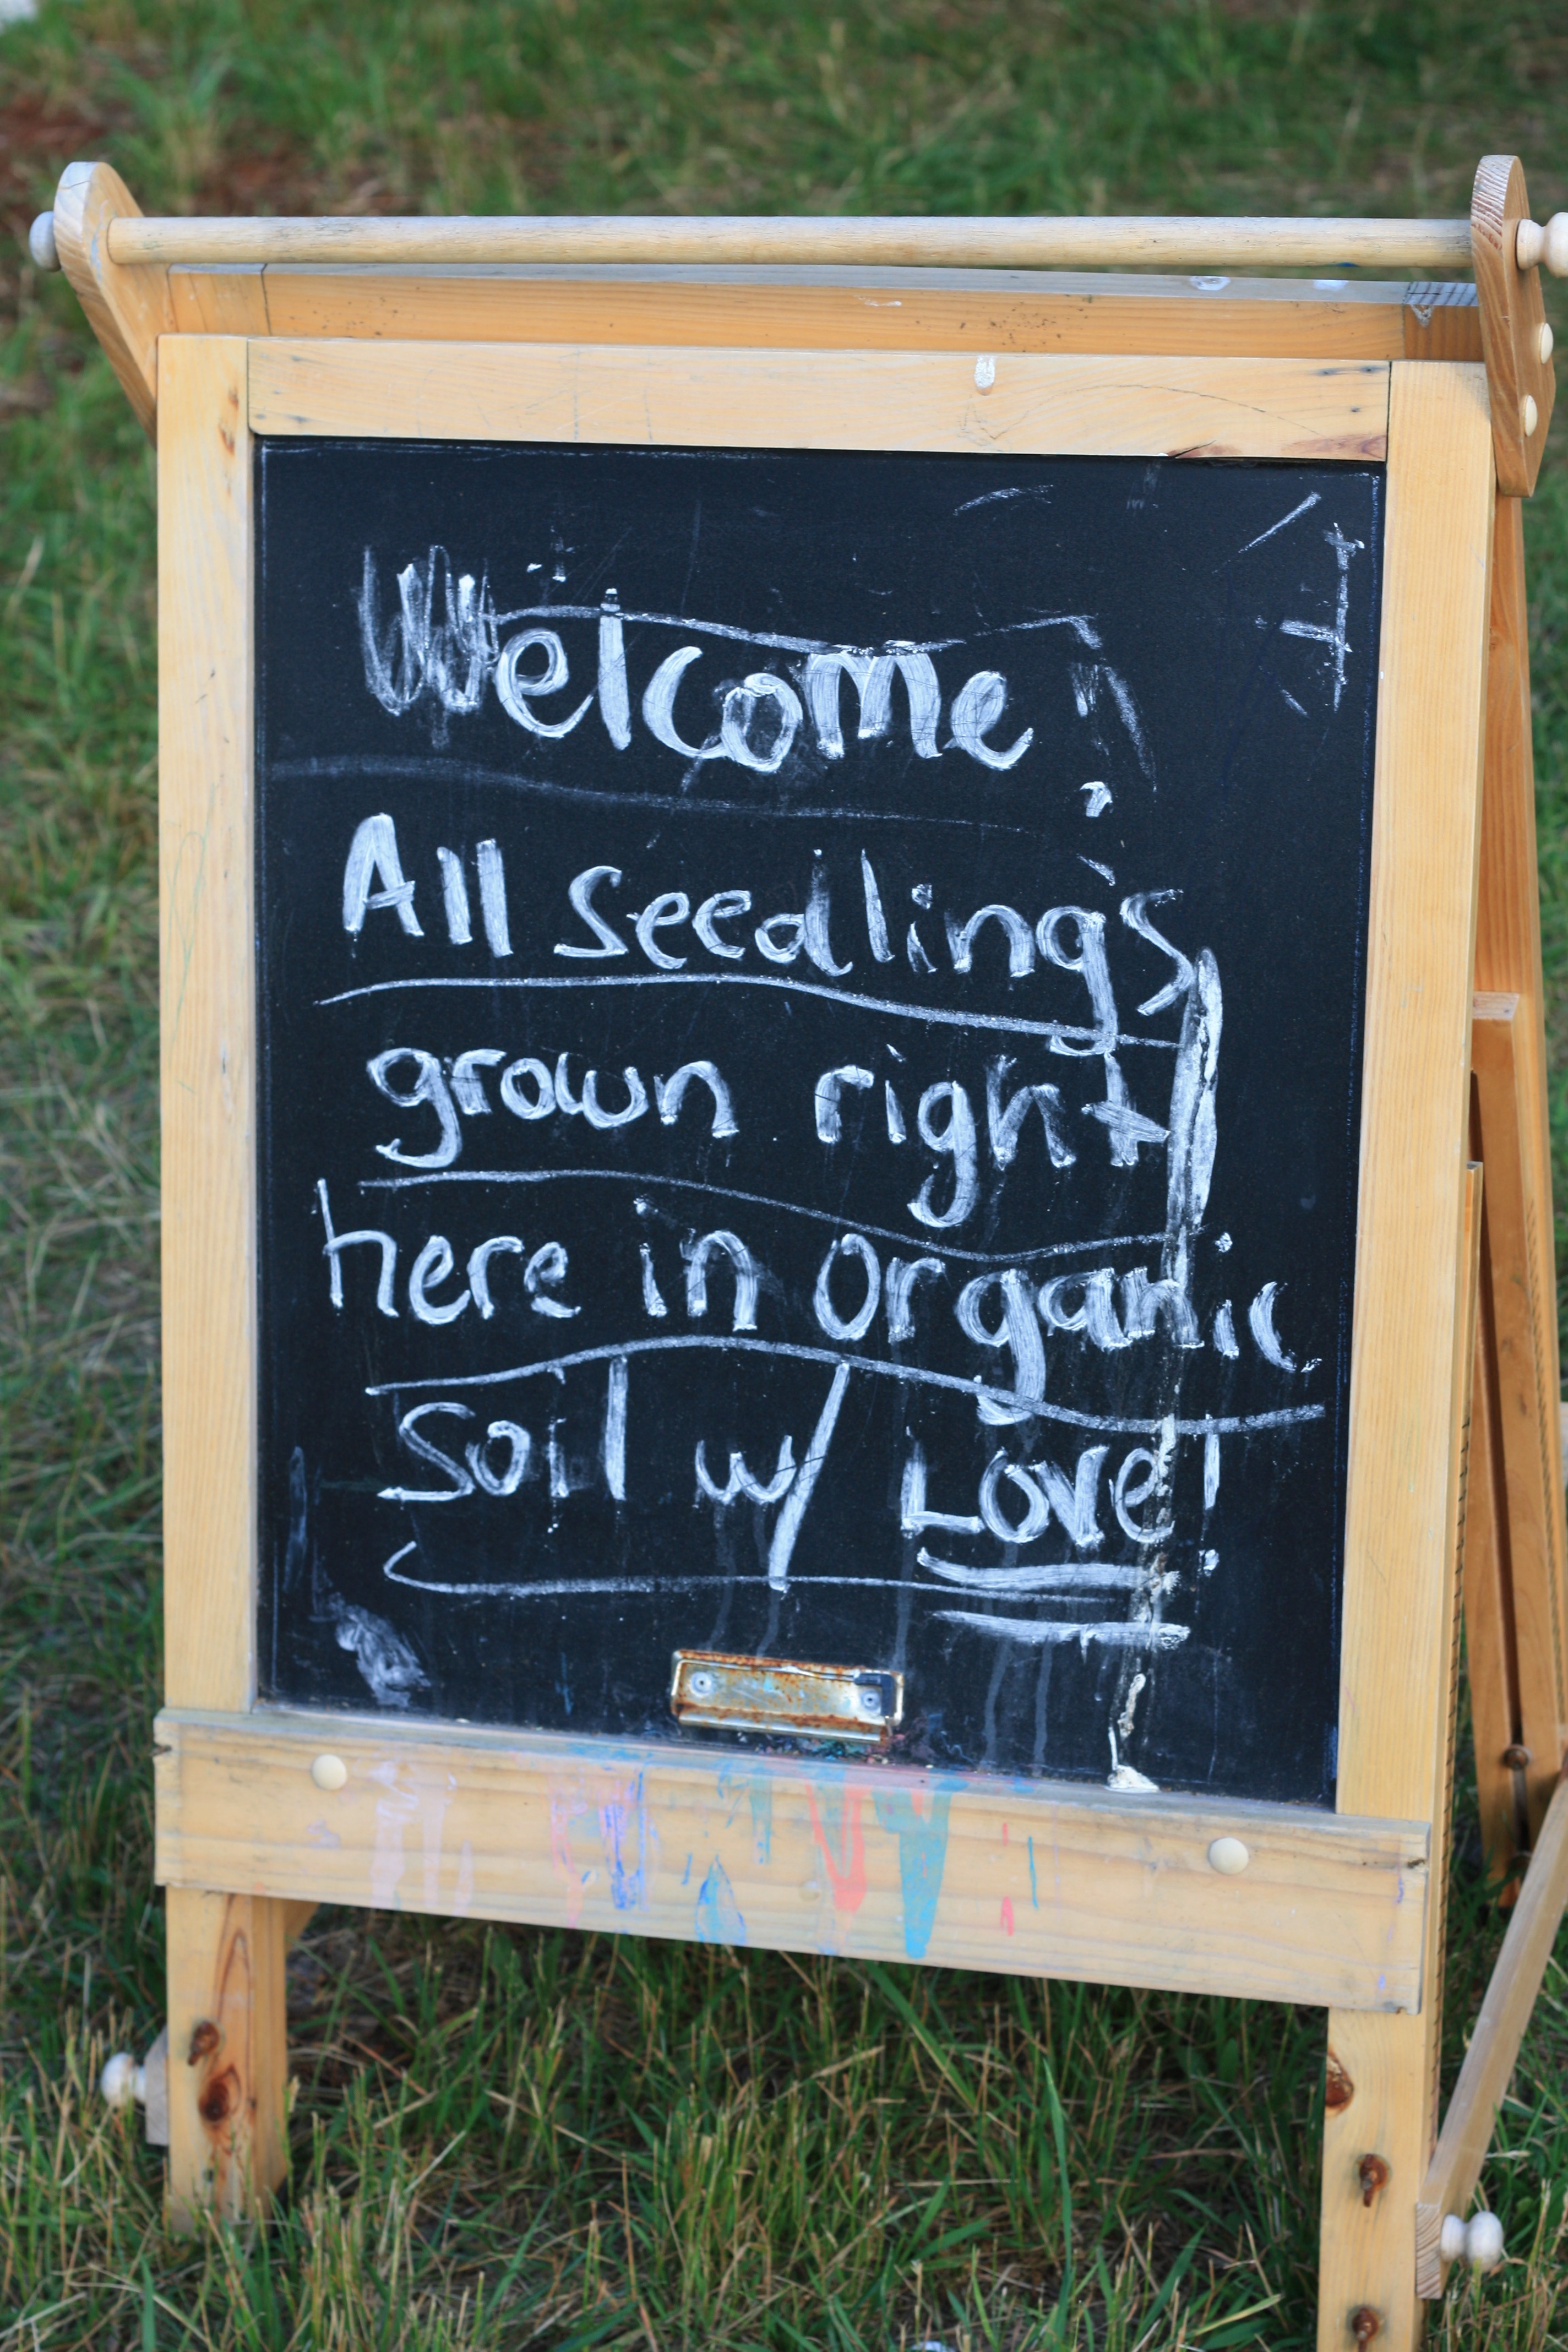 Welcome!
All seedlings
grown right
here in Organic
Soil w/ Love!